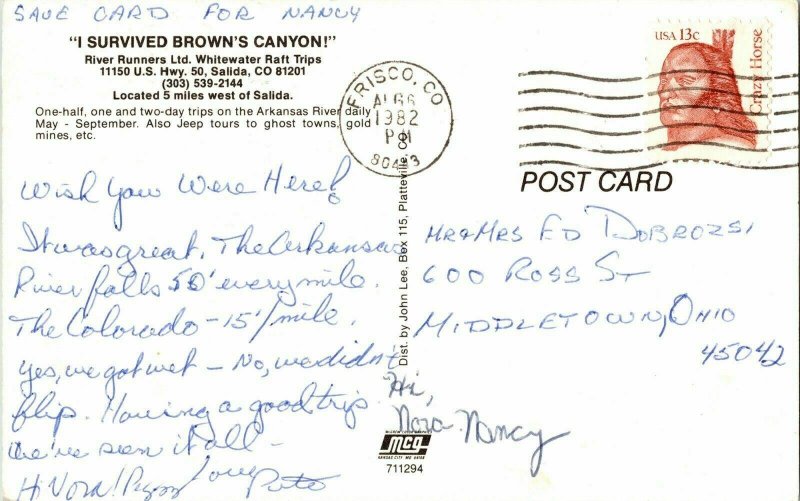 SAVE CARD FOR NANCY
"I SURVIVED BROWN'S CANYON!"
River Runners Ltd. Whitewater Raft Trips
11150 U.S. Hwy. 50, Salida, CO 81201
(303) 539-2144
Located 5 miles west of Salida.
One-half, one and two-day trips on the Arkansas River daily
May - September. Also Jeep tours to ghost towns, gold
mines, etc.
Wish You Were Here!
It was great. The Arkansas
River falls 50' every mile.
The Colorado - 15'/mile.
Yes, we got wet - No, we didn't
flip. Having a good trip.
We've seen it all -
Hi Nora! Love
Pete
Dist. by John Lee, Box 115, Platteville, CO
FRISCO, CO
AUG 6
1982
PM
80443
USA 13c
Crazy Horse
POST CARD
MR & MRS ED DOBROZSI
600 ROSS ST
MIDDLETOWN, OHIO
45042
Hi,
Nora Nancy
mcg
KANSAS CITY, MO
711294